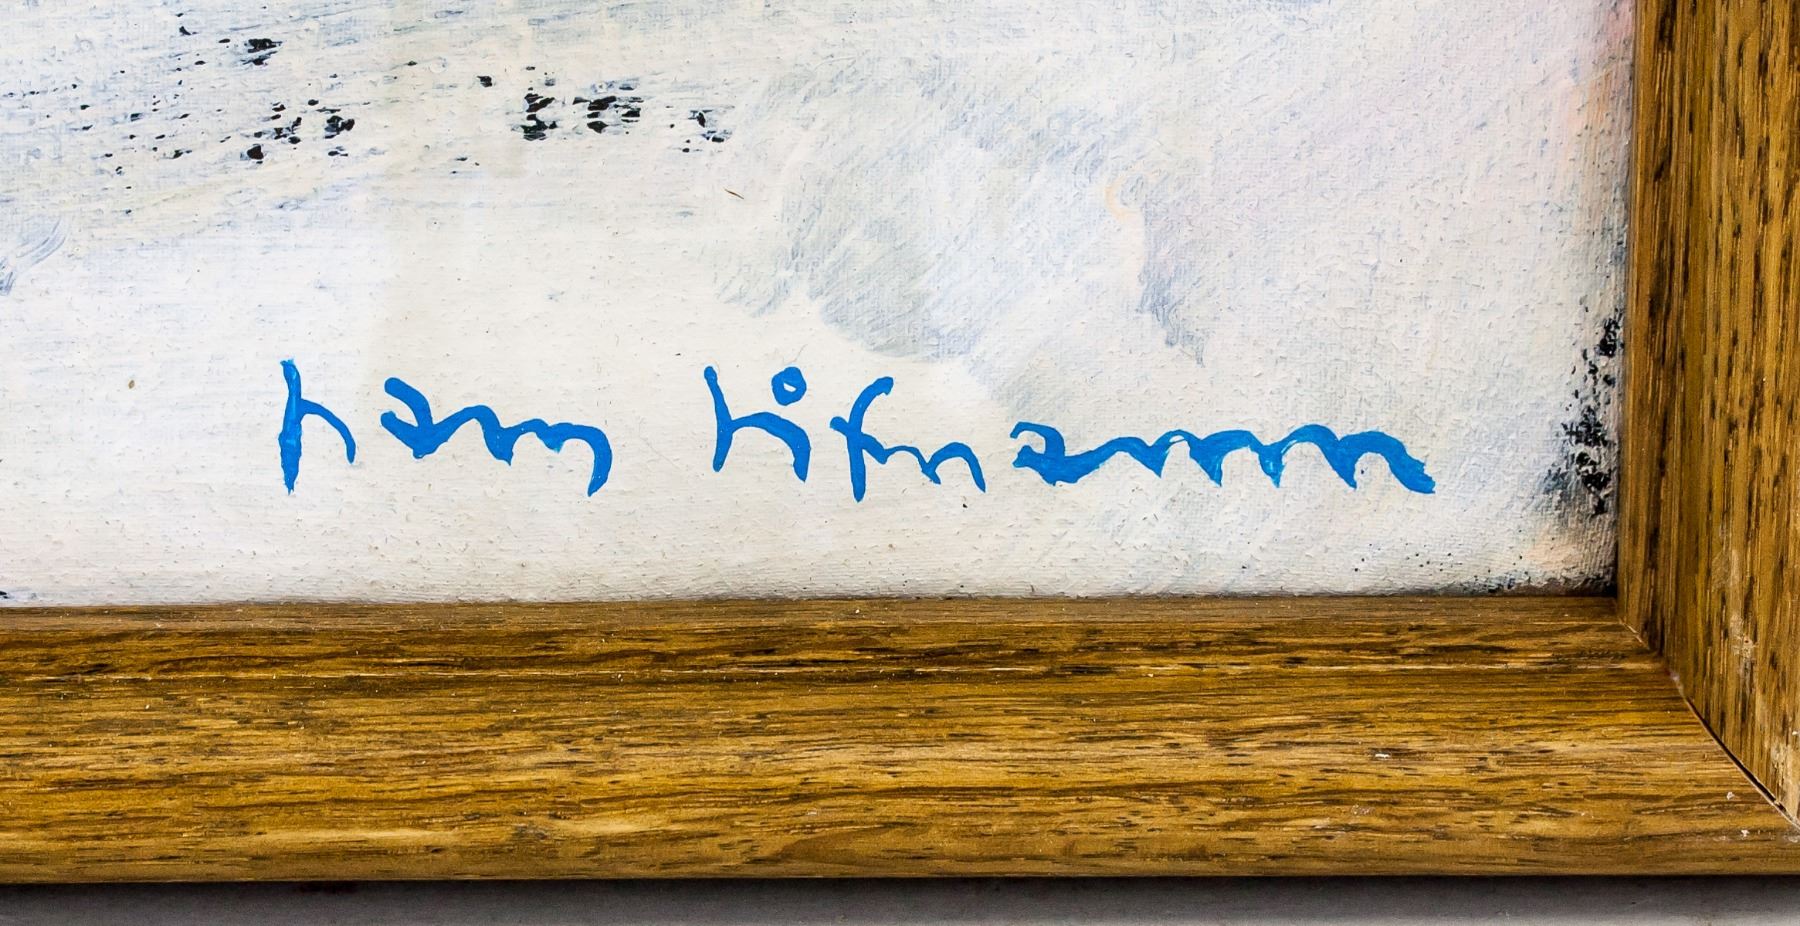 hans hofmann